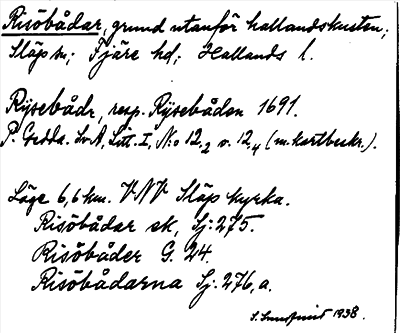 Risöbådar, grund utanför hallandskusten,
Släp sn; Fjäre hd; Hallands l.
Rysebådr, resp. Rysebåden 1691.
P. Gedda. SvA, Litt. I, N:o 12,2 o. 12,4 (m. kartbeskr.).
Läge 6,6 km. VNV Släp kyrka.
Risöbådar sk, Sj: 275.
Risöbåder G. 24.
Risöbådarna Sj. 276,a.
1938.